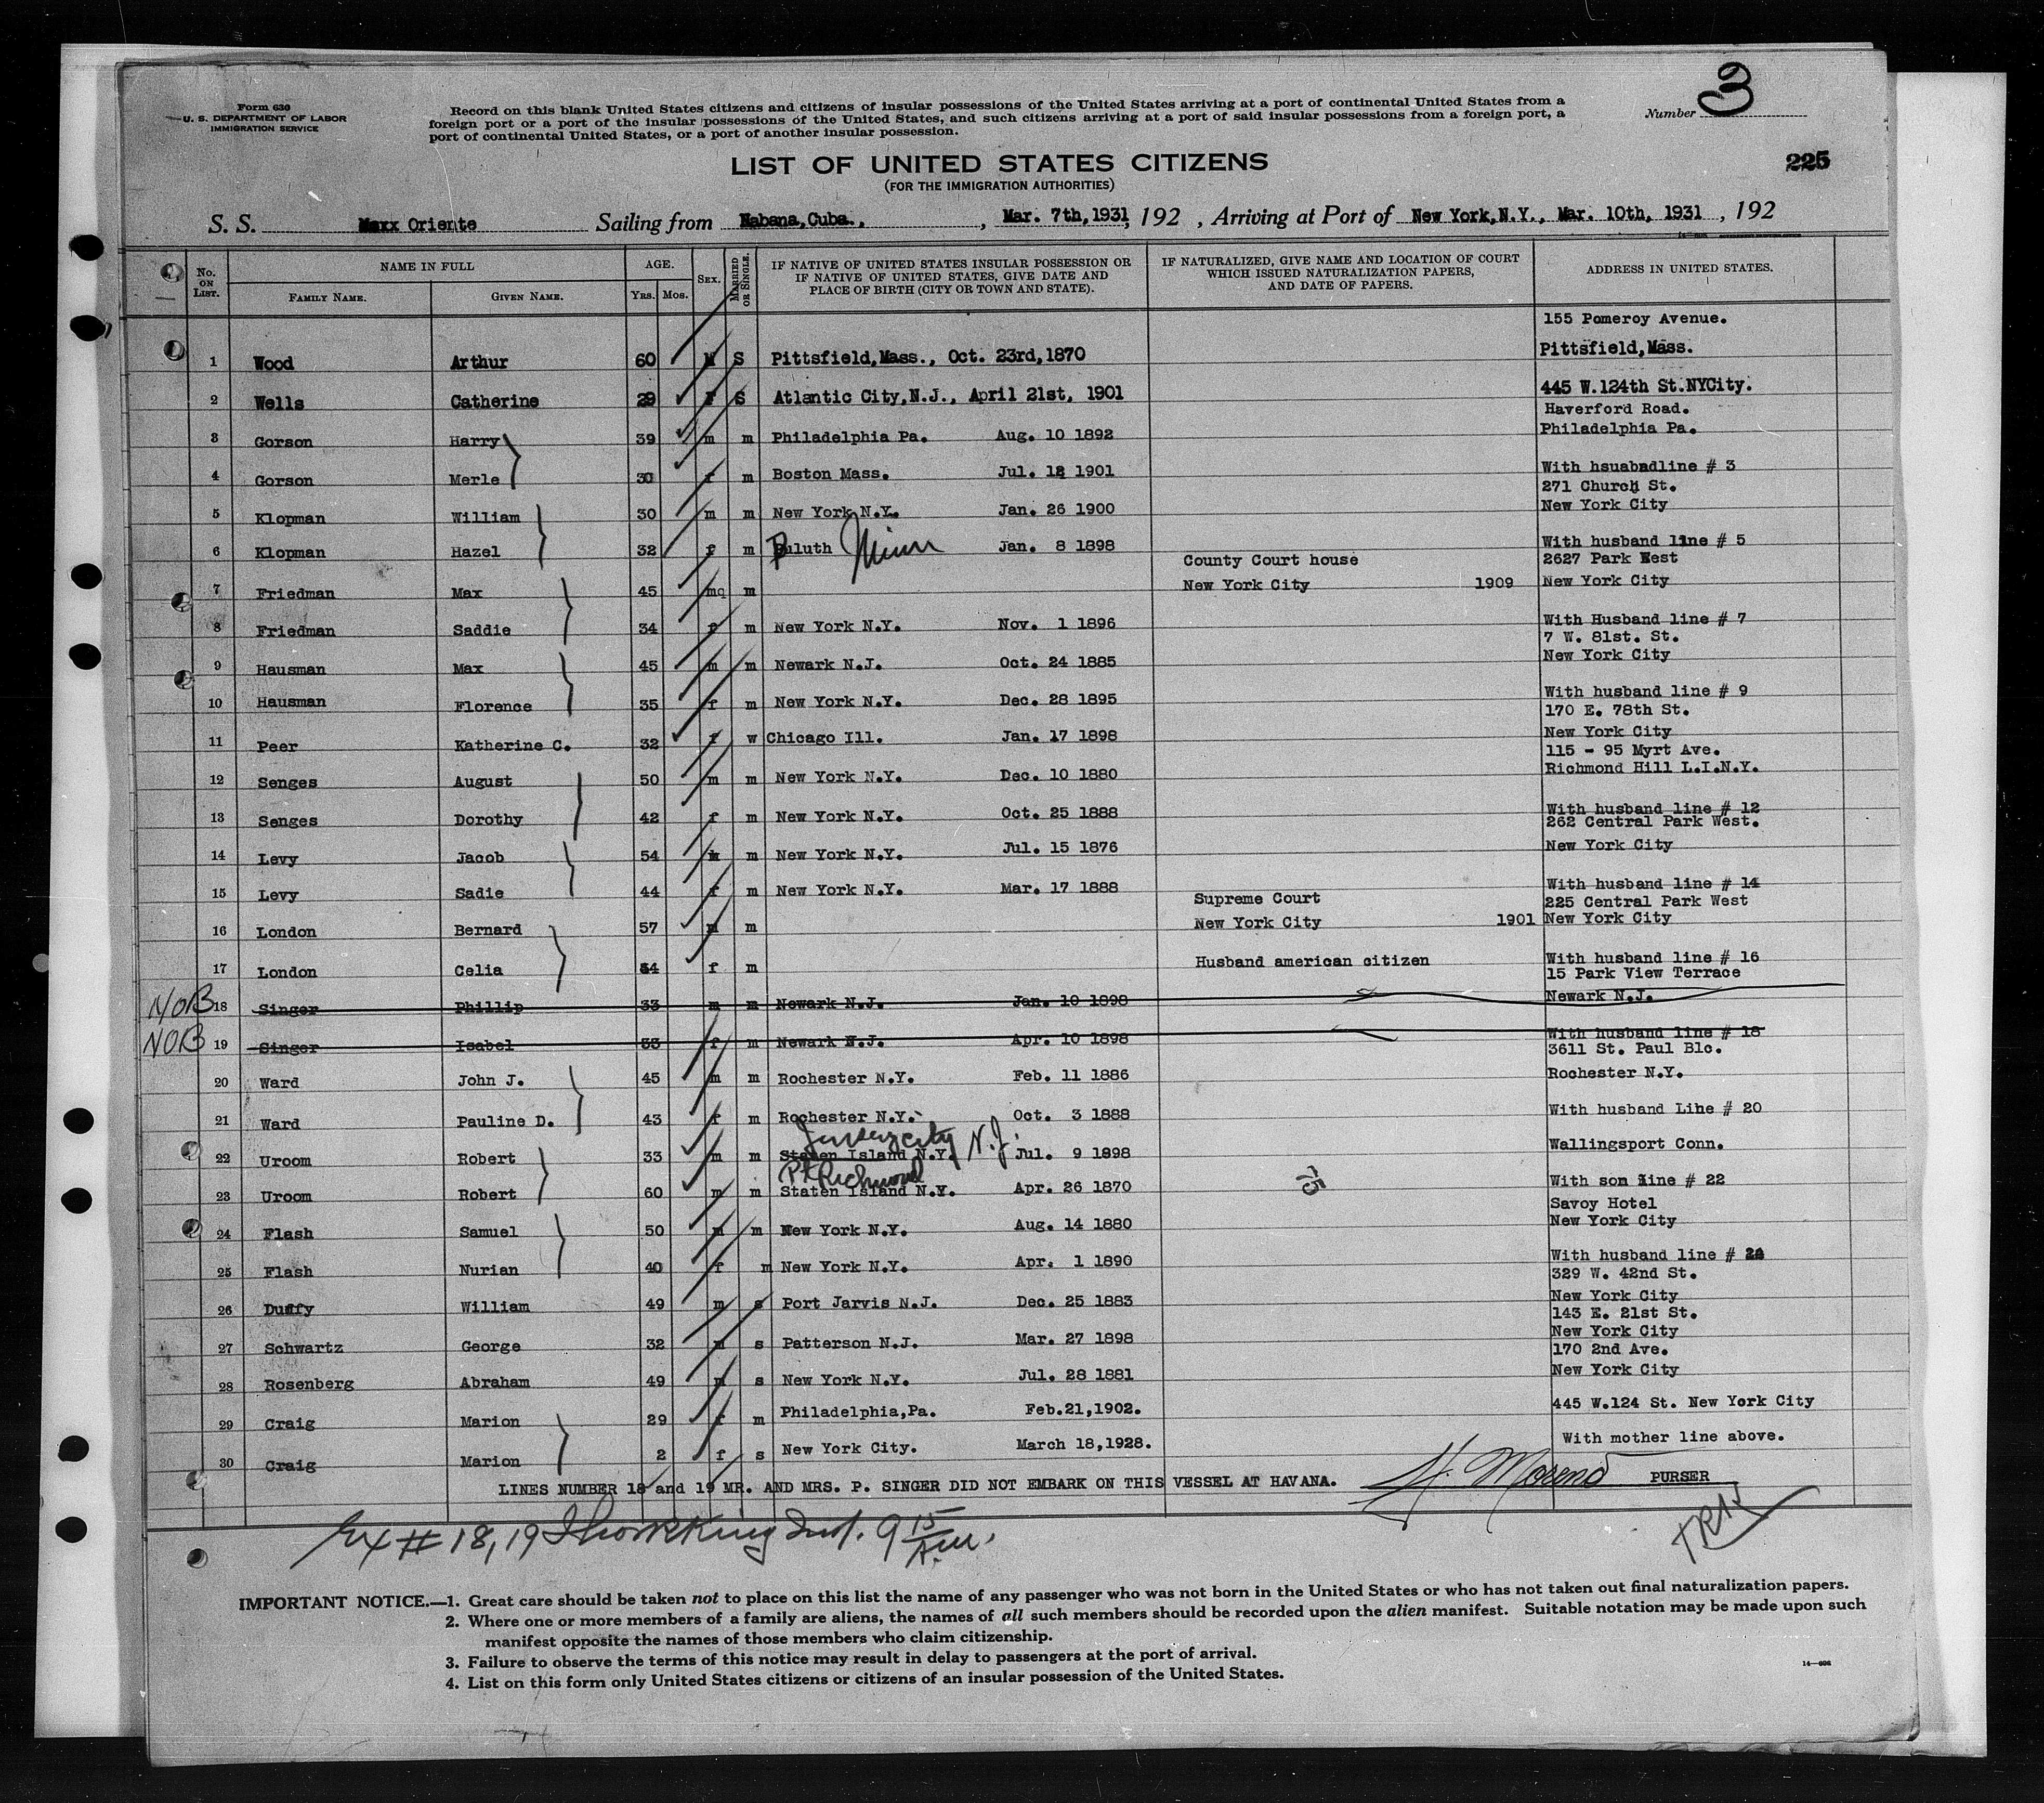 Form 630
U. S. DEPARTMENT OF LABOR
IMMIGRATION SERVICE
Record on this blank United States citizens and citizens of insular possessions of the United States arriving at a port of continental United States from a
foreign port or a port of the insular possessions of the United States, and such citizens arriving at a port of said insular possessions from a foreign port, a
port of continental United States, or a port of another insular possession.
Number 3
LIST OF UNITED STATES CITIZENS
(FOR THE IMMIGRATION AUTHORITIES)
225
S. S. Oriente Sailing from Habana, Cuba., , Mar. 7th, 1931, 192 , Arriving at Port of New York, N.Y., Mar. 10th, 1931 , 192
No. ON LIST. NAME IN FULL FAMILY NAME. GIVEN NAME. AGE. YRS. MOS. SEX. MARRIED OR SINGLE. IF NATIVE OF UNITED STATES INSULAR POSSESSION OR IF NATIVE OF UNITED STATES, GIVE DATE AND PLACE OF BIRTH (CITY OR TOWN AND STATE). IF NATURALIZED, GIVE NAME AND LOCATION OF COURT WHICH ISSUED NATURALIZATION PAPERS, AND DATE OF PAPERS. ADDRESS IN UNITED STATES.
155 Pomeroy Avenue.
1 Wood Arthur 60 M S Pittsfield, Mass., Oct. 23rd, 1870 Pittsfield, Mass.
2 Wells Catherine 29 F S Atlantic City, N.J., April 21st, 1901 445 W.124th St.NYCity.
Haverford Road.
3 Gorson Harry 39 m m Philadelphia Pa. Aug. 10 1892 Philadelphia Pa.
4 Gorson Merle 30 f m Boston Mass. Jul. 12 1901 With hsuabndline # 3
271 Church St.
5 Klopman William 30 m m New York N.Y. Jan. 26 1900 New York City
6 Klopman Hazel 32 f m Duluth Minn Jan. 8 1898 With husband line # 5
County Court house 2627 Park West
7 Friedman Max 45 m m New York City 1909 New York City
8 Friedman Saddie 34 f m New York N.Y. Nov. 1 1896 With Husband line # 7
7 W. 81st. St.
9 Hausman Max 45 m m Newark N.J. Oct. 24 1885 New York City
10 Hausman Florence 35 f m New York N.Y. Dec. 28 1895 With husband line # 9
170 E. 78th St.
11 Peer Katherine C. 32 f w Chicago Ill. Jan. 17 1898 New York City
115 - 95 Myrt Ave.
12 Senges August 50 m m New York N.Y. Dec. 10 1880 Richmond Hill L.I.N.Y.
13 Senges Dorothy 42 f m New York N.Y. Oct. 25 1888 With husband line # 12
262 Central Park West.
14 Levy Jacob 54 m m New York N.Y. Jul. 15 1876 New York City
15 Levy Sadie 44 f m New York N.Y. Mar. 17 1888 With husband line # 14
Supreme Court 225 Central Park West
16 London Bernard 57 m m New York City 1901 New York City
17 London Celia 54 f m Husband american citizen With husband line # 16
15 Park View Terrace
NOB 18 Singer Phillip 33 m m Newark N.J. Jan. 10 1898 Newark N.J.
NOB 19 Singer Isabel 33 f m Newark N.J. Apr. 10 1898 With husband line # 18
3611 St. Paul Blc.
20 Ward John J. 45 m m Rochester N.Y. Feb. 11 1886 Rochester N.Y.
21 Ward Pauline D. 43 f m Rochester N.Y. Oct. 3 1888 With husband Line # 20
Jersey city N.J.
22 Uroom Robert 33 m m Staten Island N.Y. Jul. 9 1898 Wallingsport Conn.
Pt Richmond
23 Uroom Robert 60 m m Staten Island N.Y. Apr. 26 1870 With son line # 22
Savoy Hotel
24 Flash Samuel 50 m m New York N.Y. Aug. 14 1880 New York City
25 Flash Nurian 40 f m New York N.Y. Apr. 1 1890 With husband line # 24
329 W. 42nd St.
26 Duffy William 49 m s Port Jarvis N.J. Dec. 25 1883 New York City
143 E. 21st St.
27 Schwartz George 32 m s Patterson N.J. Mar. 27 1898 New York City
170 2nd Ave.
28 Rosenberg Abraham 49 m s New York N.Y. Jul. 28 1881 New York City
29 Craig Marion 29 f m Philadelphia, Pa. Feb.21,1902. 445 W.124 St. New York City
30 Craig Marion 2 f s New York City. March 18,1928. With mother line above.
LINES NUMBER 18 and 19 MR. AND MRS. P. SINGER DID NOT EMBARK ON THIS VESSEL AT HAVANA. H. Moreno PURSER
Ex # 18, 19 Insp. 9 15 A.M.
IMPORTANT NOTICE.—1. Great care should be taken not to place on this list the name of any passenger who was not born in the United States or who has not taken out final naturalization papers.
2. Where one or more members of a family are aliens, the names of all such members should be recorded upon the alien manifest. Suitable notation may be made upon such
manifest opposite the names of those members who claim citizenship.
3. Failure to observe the terms of this notice may result in delay to passengers at the port of arrival.
4. List on this form only United States citizens or citizens of an insular possession of the United States.